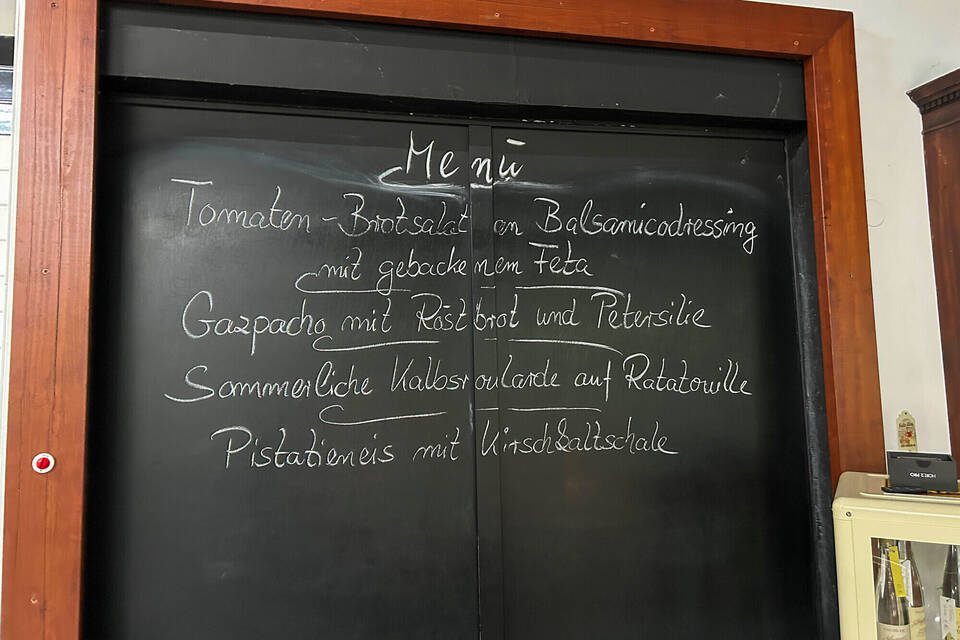 Menü
Tomaten-Brotsalat an Balsamicodressing
mit gebackenem Feta
Gazpacho mit Röstbrot und Petersilie
Sommerliche Kalbsroularde auf Ratatouille
Pistatieneis mit Kirschkaltschale